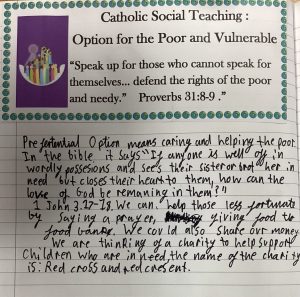 Catholic Social Teaching :
Option for the Poor and Vulnerable
“Speak up for those who cannot speak
for themselves... defend the rights of the poor
and needy.”   Proverbs 31:8-9 .”
Preferential Option means caring and helping the poor.
In the bible it says "If anyone is well off in
wordly possesions and sees their sister or brother in
need but closes their heart to them, how can the
love of God be remaining in them?"
1 John 3.17-18. We can help those less fortunate
by saying a prayer, giving food to
food banks. We could also share our money.
We are thinking of a charity to help support
Children who are in need, the name of the charity
is: Red cross and red cresent.